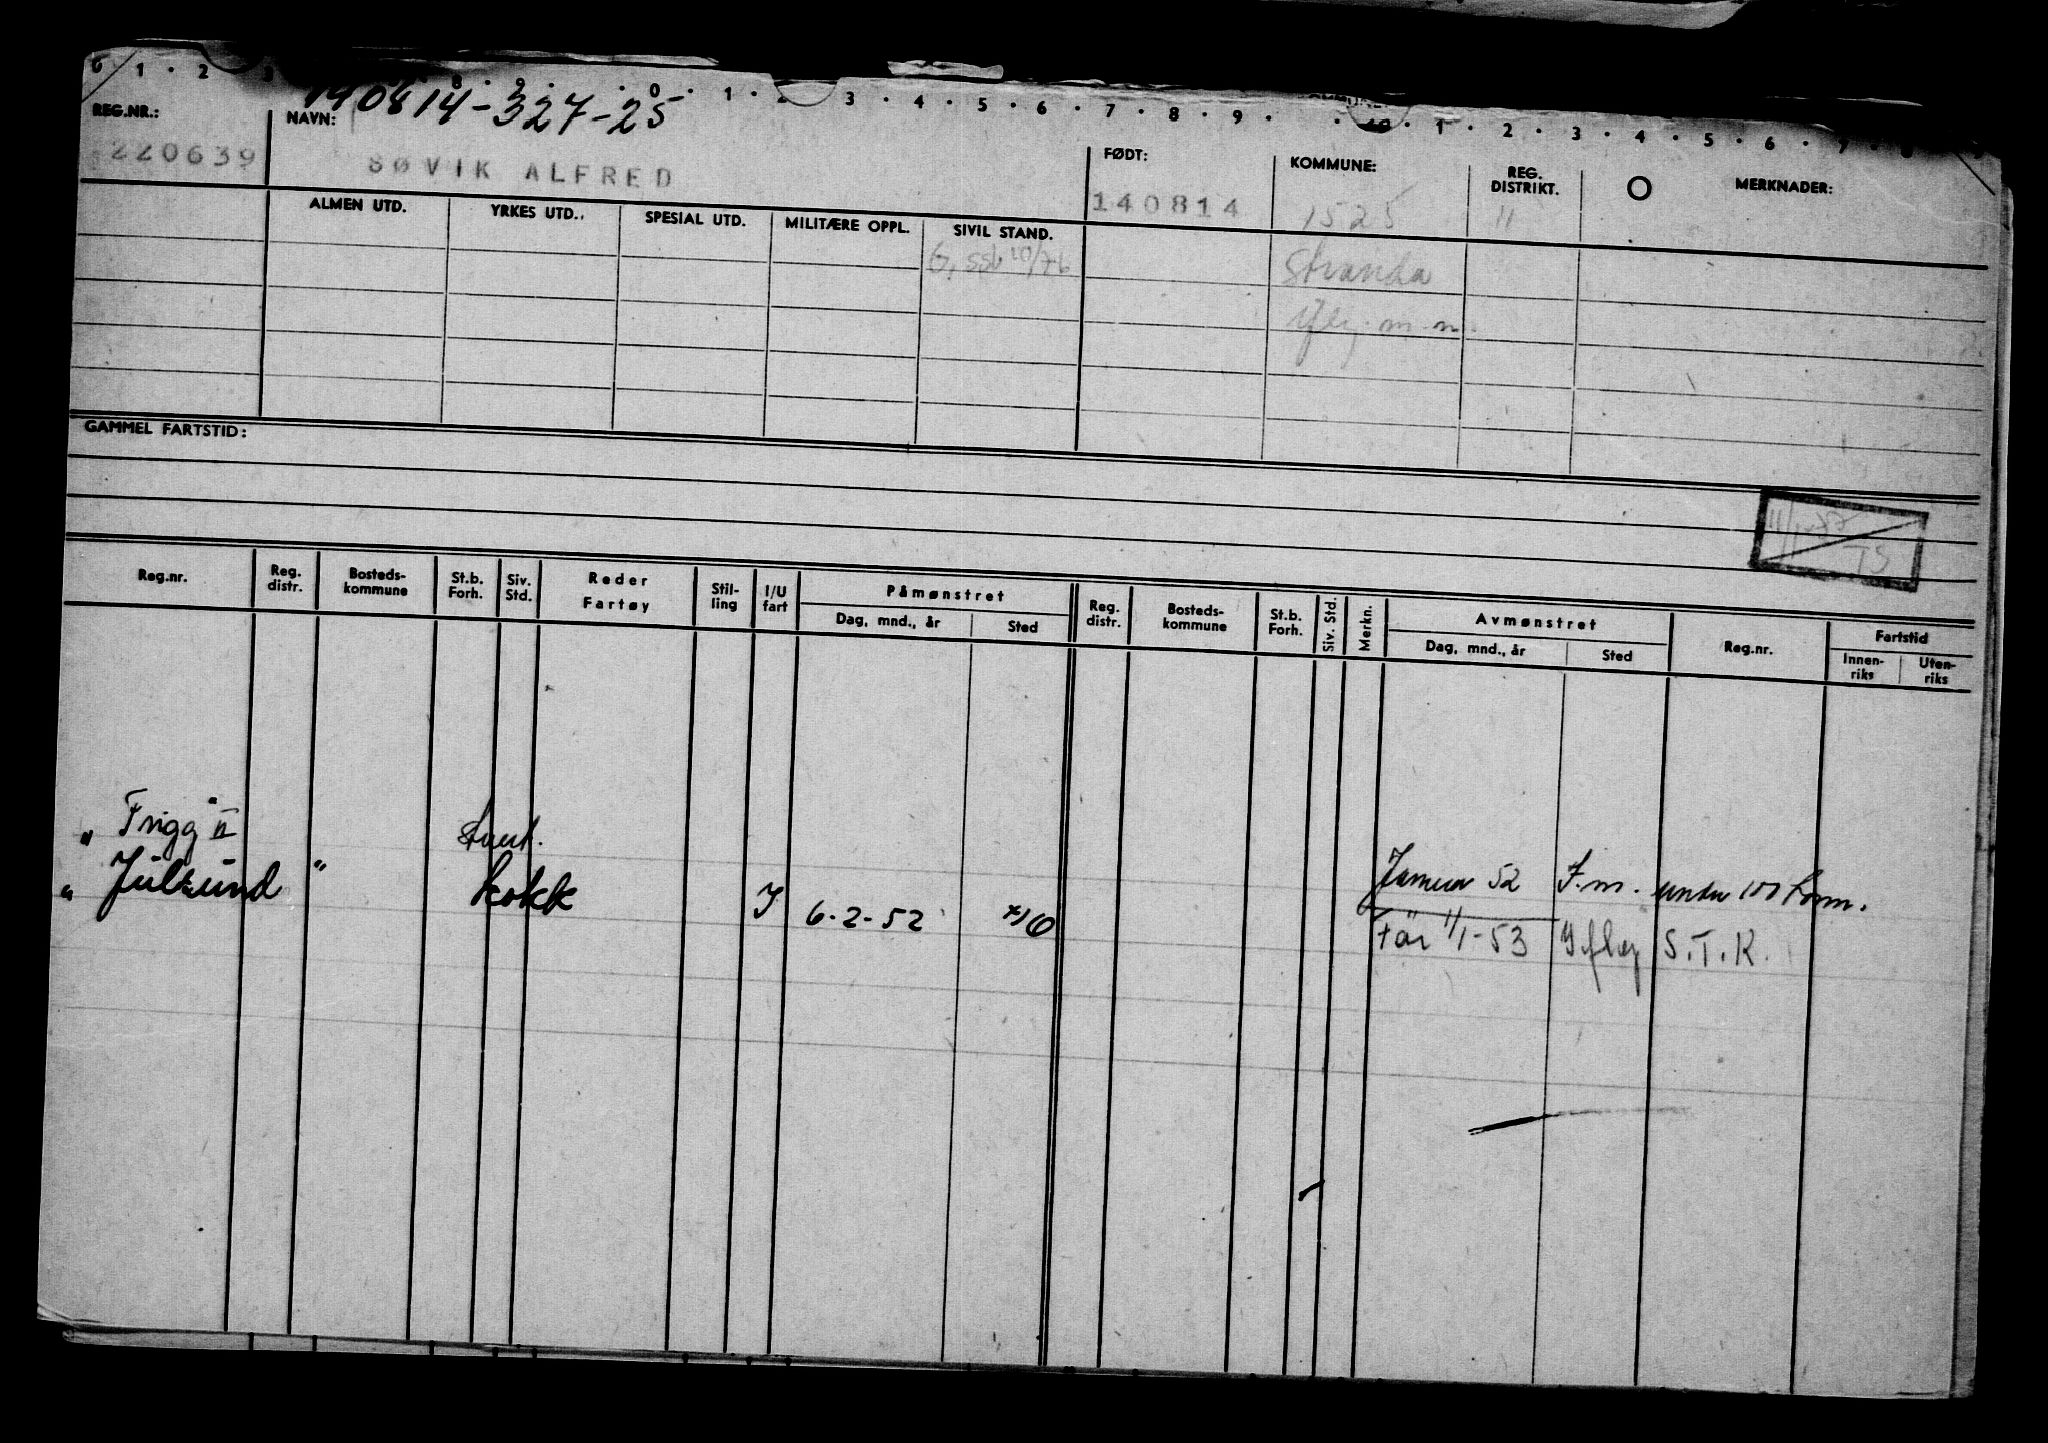 0 1 · 2 3 8 · 9 · 0 · 1 · 2 3 · 4 · 5 · 6 · 7 · 8 · 9 · · 10 · 1 · 2 · 3 · 4 · 5 · 6 · 7 · 8
140814-327-25
REG.NR.: NAVN: FØDT: KOMMUNE: REG. DISTRIKT. MERKNADER:
220639 SØVIK ALFRED 140814 1525 11
ALMEN UTD. YRKES UTD. SPESIAL UTD. MILITÆRE OPPL. SIVIL STAND.
Stranda
m.m.
GAMMEL FARTSTID:
TS
Reg.nr. Reg. distr. Bosteds-kommune St.b. Forh. Siv. Std. Reder Fartøy Stil-ling I/U fart Påmønstret Reg. distr. Bosteds-kommune St.b. Forh. Siv. Std. Merkn. Avmønstret Reg.nr. Fartstid
Dag, mnd., år Sted Dag, mnd., år Sted Innen-riks Uten-riks
"Frigg II" Stuert.
"Julsund" kokk I 6-2-52
52 F.m. under 100 tonn.
Før 1/1-53 S.T.K.